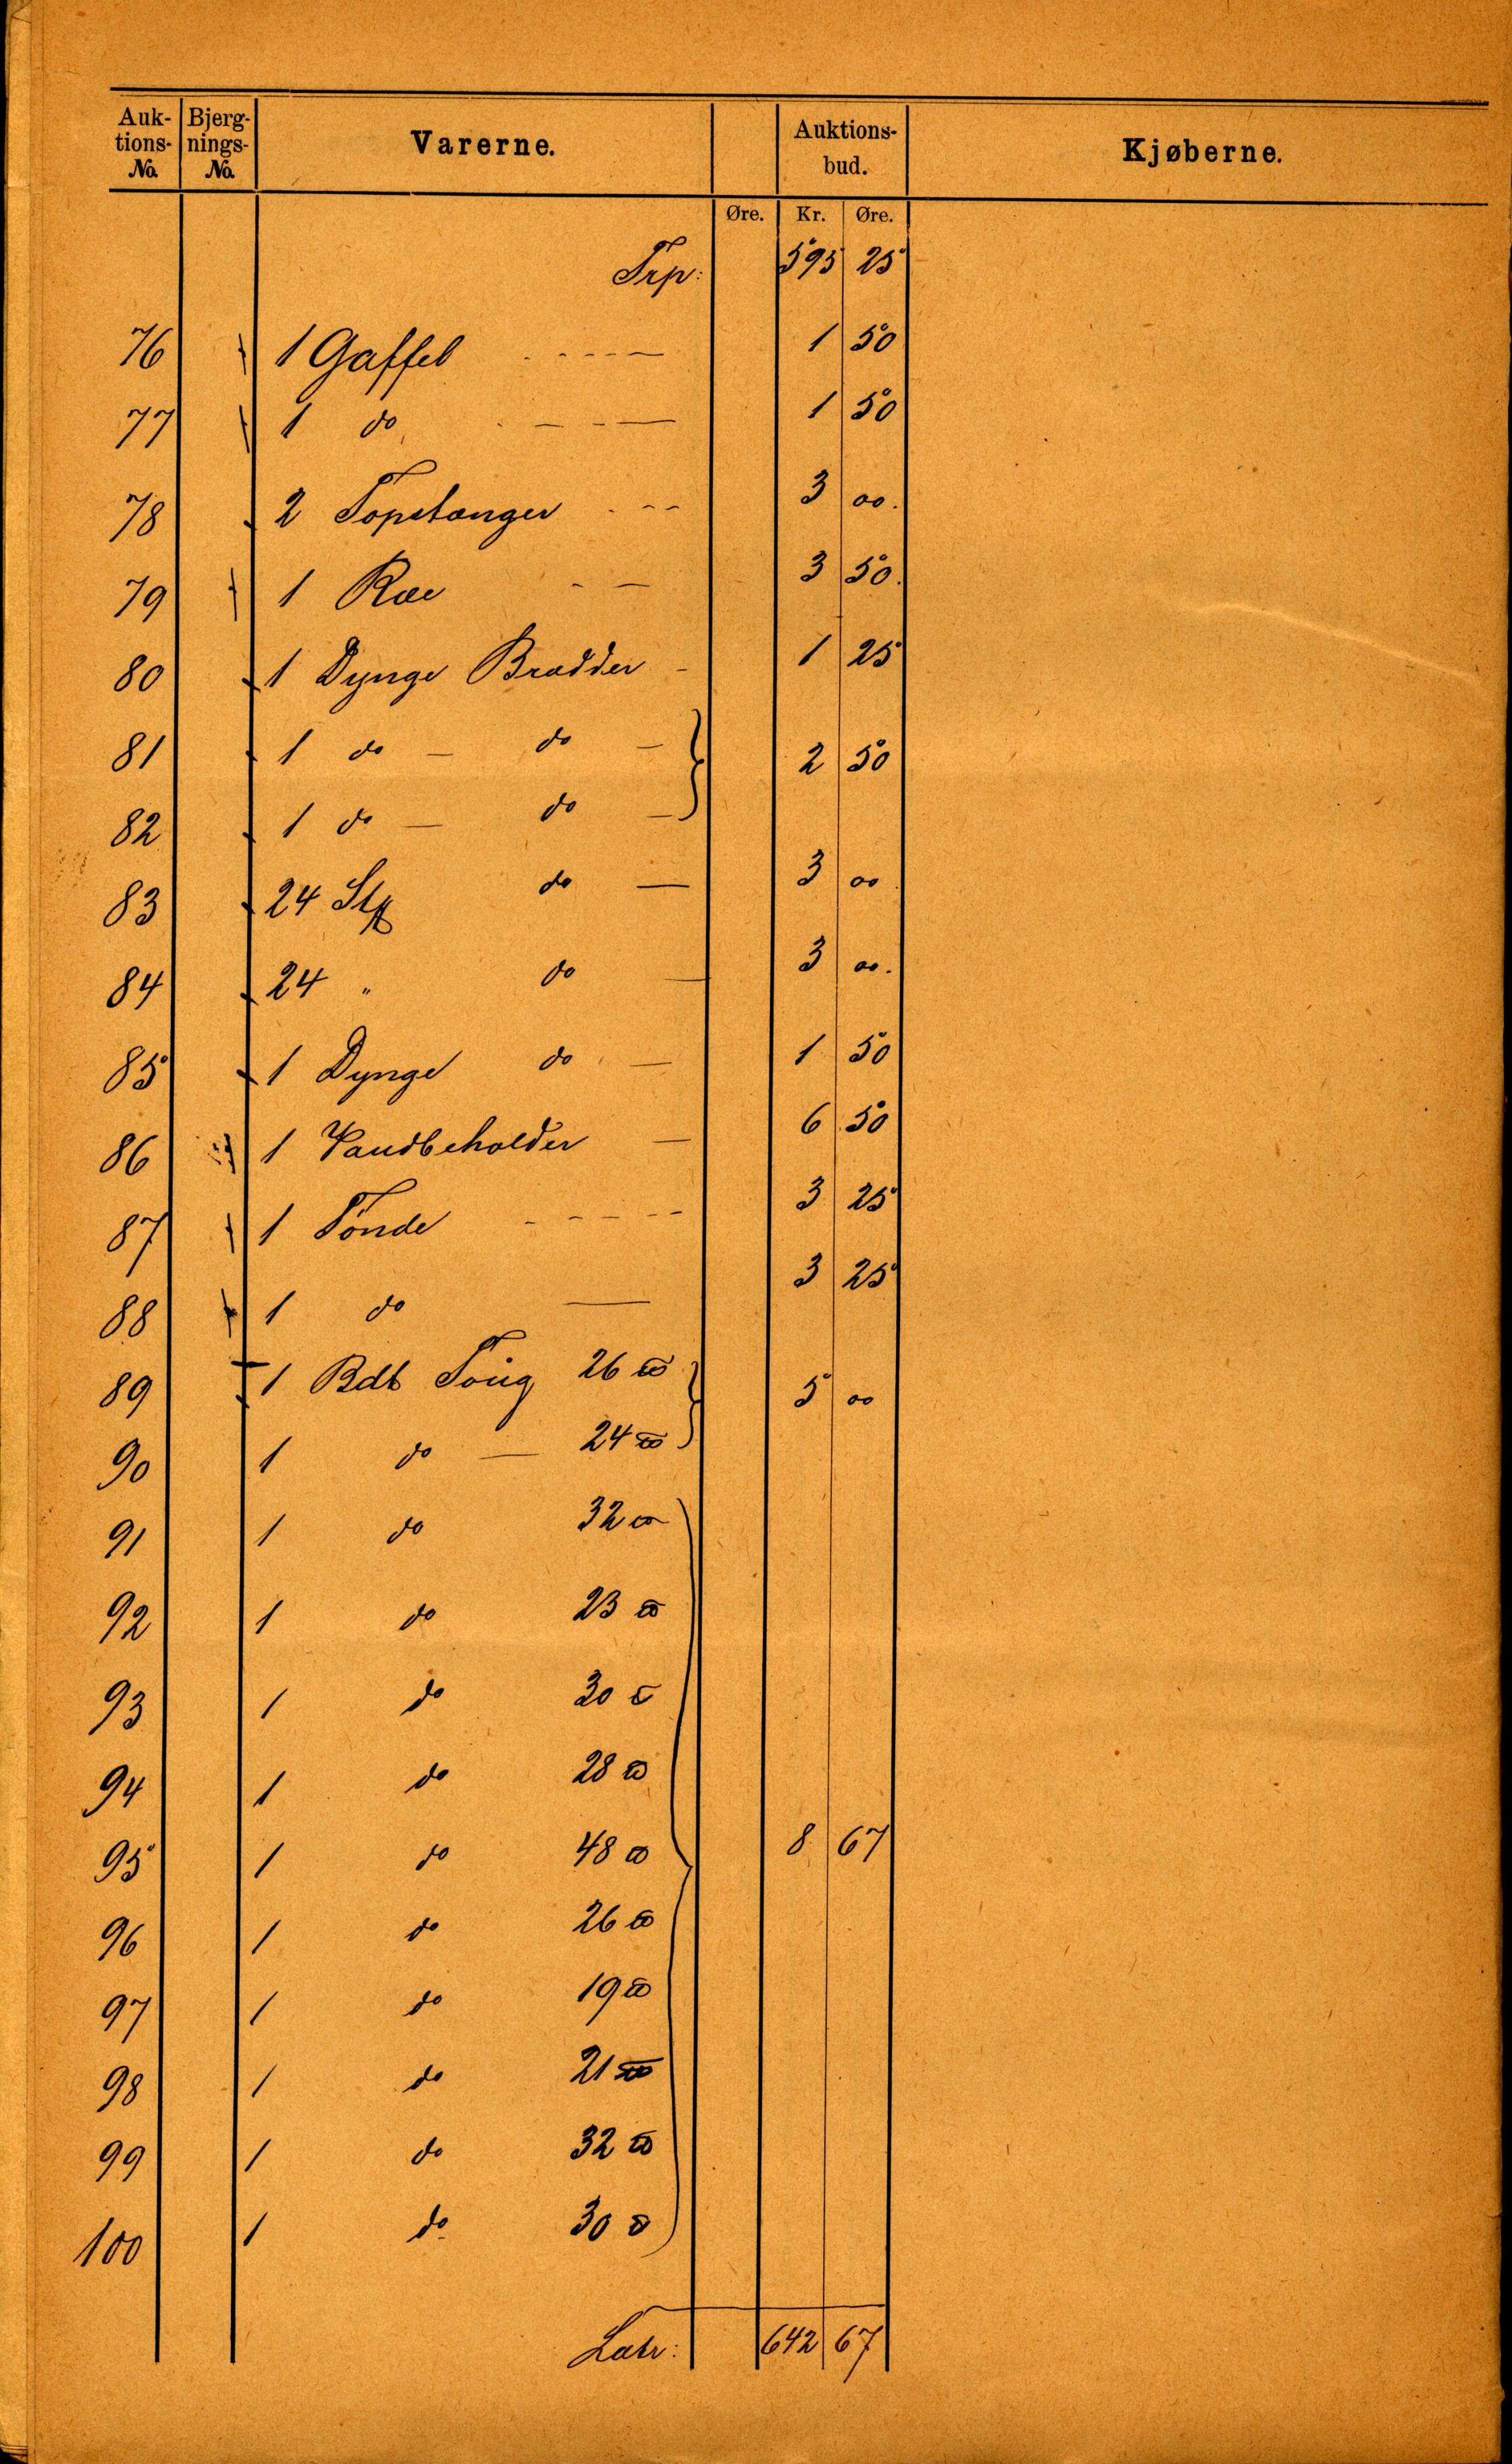 Auk-tions-No. Bjerg-nings-No. Varerne. Auktions-bud. Kjøberne.
Øre. Kr. Øre.
Trp: 595 25
76 1 Gaffel 1 50
77 1 do 1 50
78 2 Topstænger 3 00.
79 1 Rae 3 50.
80 1 Dynge Brædder 1 25
81 1 do — do — 2 50
82 1 do — do —
83 24 Stk do — 3 00
84 24 " do — 3 00.
85 1 Dynge do — 1 50
86 1 Vandbeholder — 6 50
87 1 Tønde 3 25
88 1 do — 3 25
89 1 Bdt Toug 26 ℔ 5 00
90 1 do — 24 ℔
91 1 do 32 ℔
92 1 do 23 ℔
93 1 do 30 ℔
94 1 do 28 ℔
95 1 do 48 ℔ 8 67
96 1 do 26 ℔
97 1 do 19 ℔
98 1 do 21 ℔
99 1 do 32 ℔
100 1 do 30 ℔
Latr: 642 67